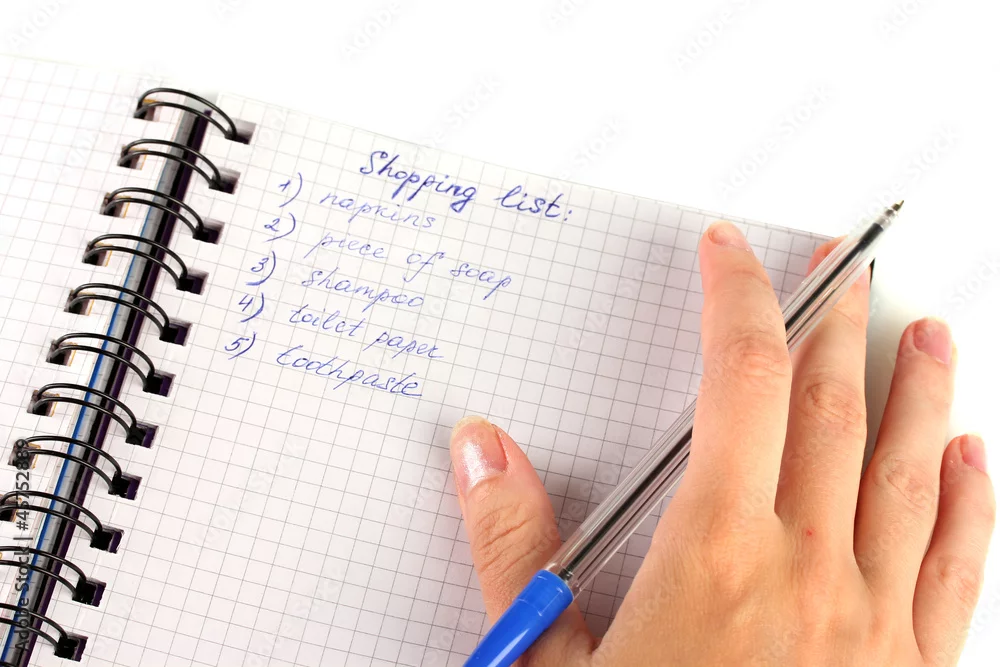 Shopping list:
1) napkins
2) piece of soap
3) shampoo
4) toilet paper
5) toothpaste
Adobe Stock | #45752889